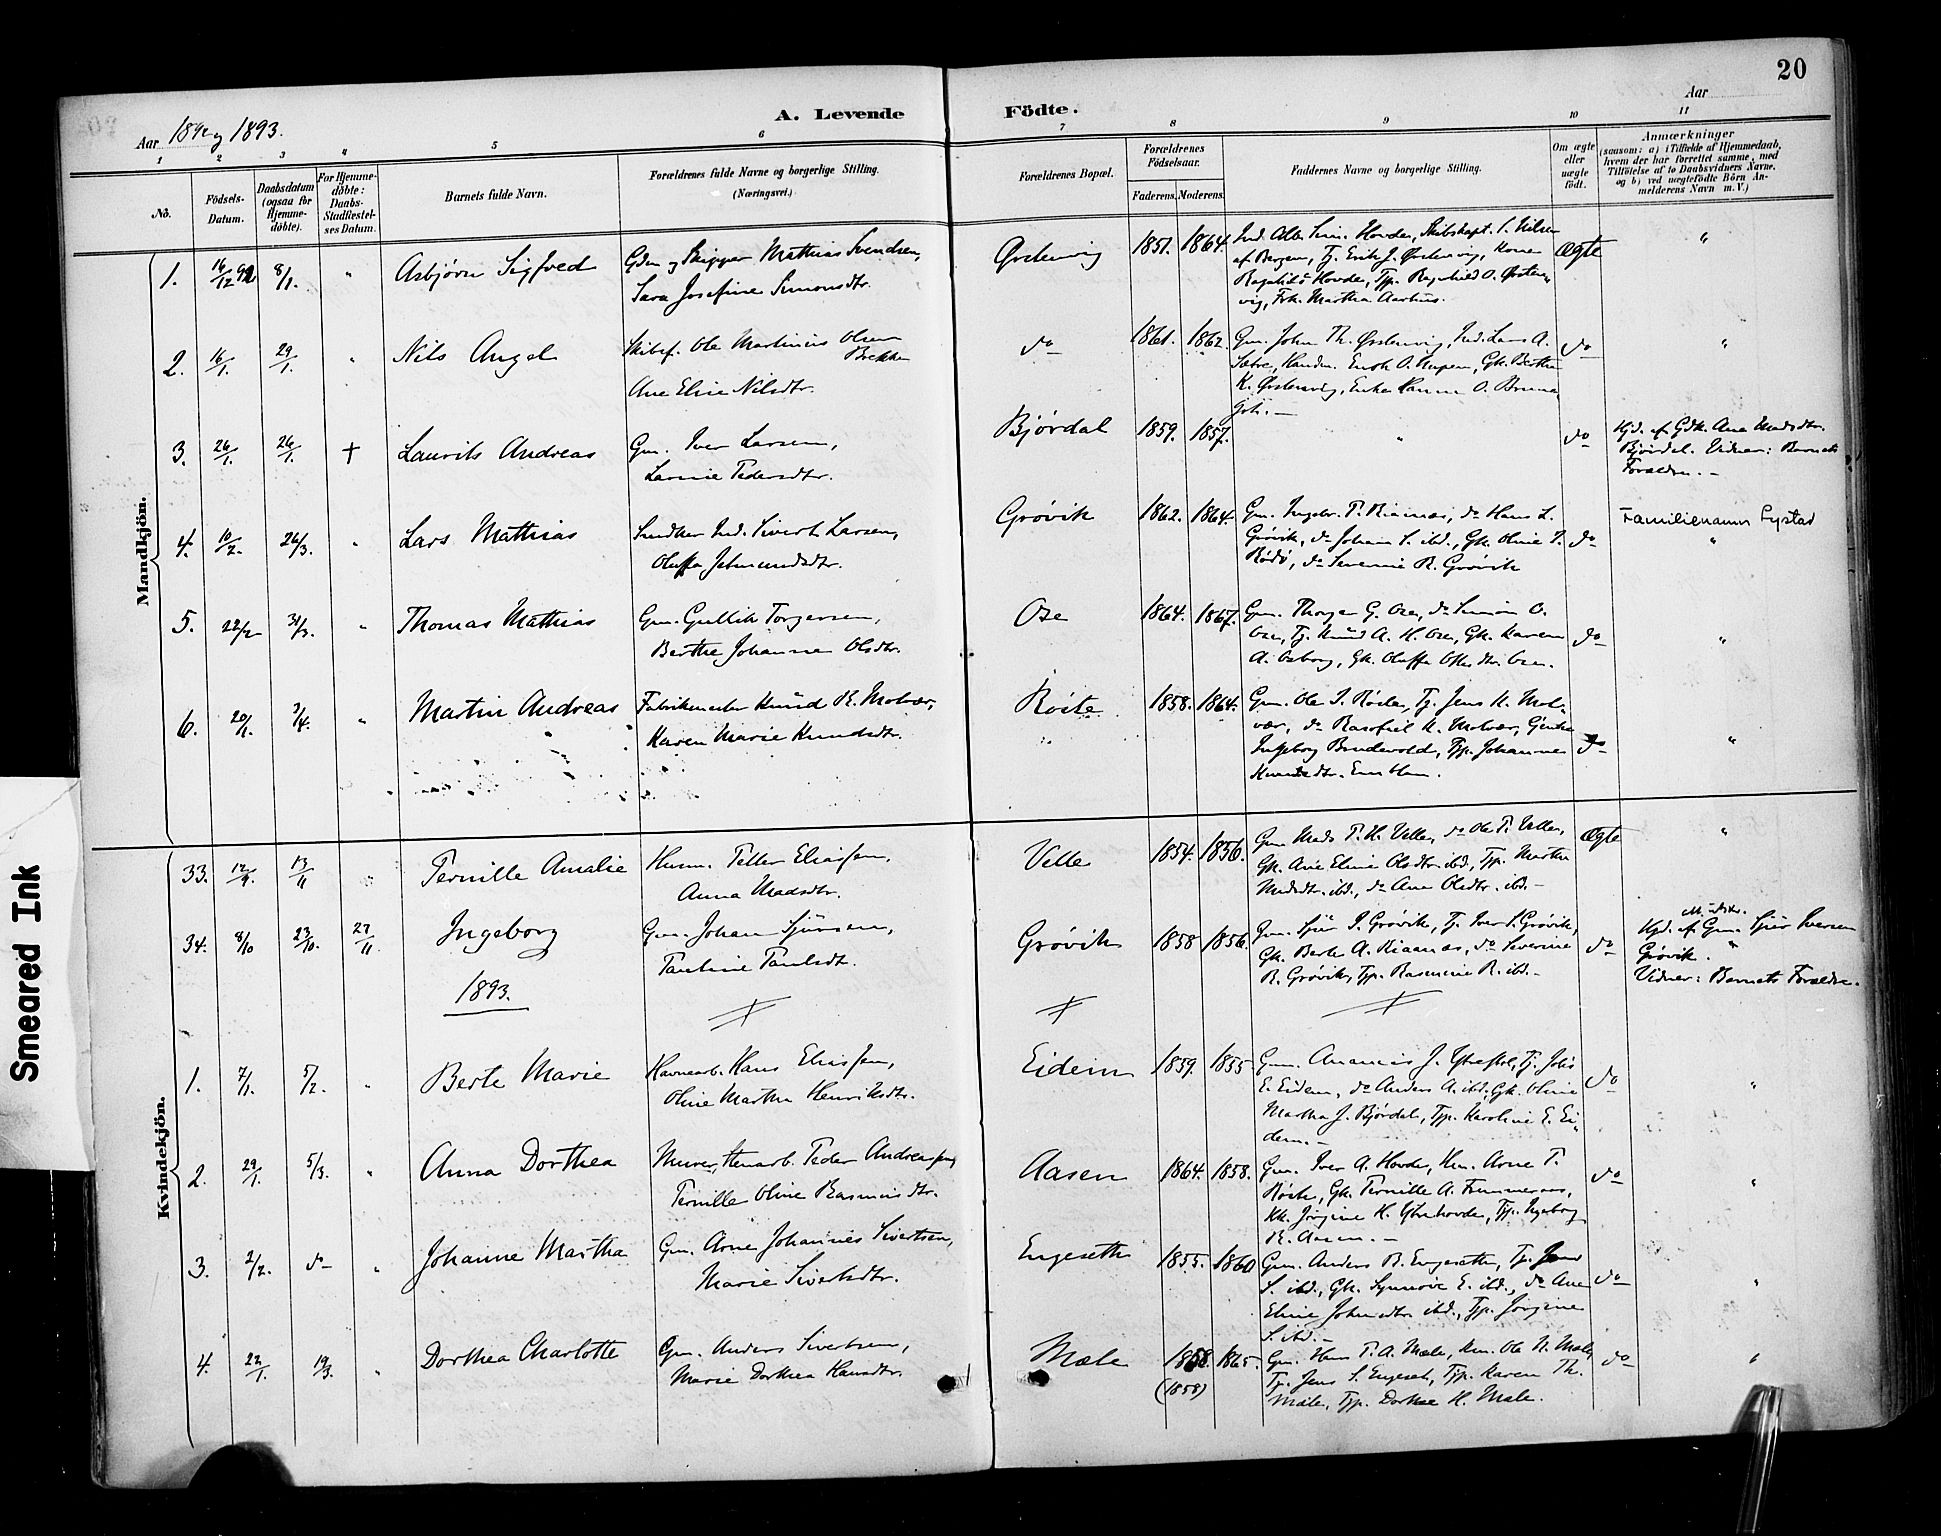 20
A. Levende Födte.
Aar 1892 og 1893.
Aar
1 2 3 4 5 6 7 8 9 10 11
No.
Födsels-
Datum.
Daabsdatum
(ogsaa for
Hjemme-
döbte).
For Hjemme-
döbte:
Daabs-
Stadfæstel-
ses Datum.
Barnets fulde Navn.
Forældrenes fulde Navne og borgerlige Stilling.
(Næringsvei.)
Forældrenes Bopæl.
Forældrenes
Födselsaar.
Faderens. Moderens.
Faddernes Navne og borgerlige Stilling.
Om ægte
eller
uægte
født.
Anmærkninger
(saasom: a) i Tilfælde af Hjemmedaab,
hvem der har forrettet samme, med
Tilföielse af to Daabsvidners Navne,
og b) ved uægtefödte Börn An-
melderens Navn m. V.)
Mandkjön.
1. 16/12 92 8/1. " Asbjørn Sigfred
Gdm og Skipper Mathias Svendsen,
Sara Josefine Simonsdtr.
Ørstenvig 1851. 1864.
Hovde, Skibskapt. S. Nilsen
af Bergen, Tj. Erik J. Ørstenvig, Kone
Hovde, Tjp. Ragnhild O. Ørsten-
vig, Frk. Martha Aarhus.
Ægte "
2. 16/1. 29/1. " Nils Angel
Skibsf. Ole Martinius Olsen
Brekke
Ane Elise Nilsdtr.
do 1861. 1862.
Gm. John Th. Ørstenvig, Ind. Lars A.
Sætre,
K. Ørstenvig, Enke Hanna O.
do "
3. 26/1. 26/1. + Laurits Andreas
Gm. Iver Larsen,
Larine Pedersdtr.
Bjørdal 1859. 1857. " do
Hjd. af Gdk. Ane Madsdtr.
Bjørdal. Vidner: Barnets
Forældre. -
4. 10/2. 26/3. " Lars Mathias
Snedker Ind. Sivert Larsen,
Oluffa Jetmundsdtr.
Grövik 1862. 1864.
Gm. Ingebr. P. Riaanæs, do Hans L.
Grövik, do Johan S. ibd., Gk. Oline P.
Rödö, do Severine R. Grövik
do
Familienavn Systad
"
5. 22/2 31/3. " Thomas Mathias
Gm. Gullik Torgersen,
Berthe Johanne Olsdtr.
Ose 1864. 1867.
Gm. Thorger G. Ose, do Simon O.
Ose, Tj. Knud A. H. Ose, Gk. Karen
A. Osborg, Gk. Oluffa Ose.
do "
6. 20/1. 3/4. " Martin Andreas
Fabrikmester Knud R. Molvær,
Karen Marie Knudsdtr.
Röite 1858. 1864.
Gm. Ole I. Röite, Tj. Jens K. Mol-
vær, do K. Molvær, Gjente
Ingeborg Brudevold, Tjp. Johanne
Knudsdtr. Emblem.
do "
Kvindekjön.
33. 12/9. 13/11 " Pernille Amalie
Husm. Petter Eliasen,
Anna Madsdtr.
Velle 1854. 1856.
Gm Mads P. H. Velle, do Ole P. Velle,
Gk. Ane Eline Olsdtr. ibd., Tjp. Martha
Madsdtr. ibd., do Ane Olsdtr. ibd. -
Ægte "
34. 8/10 23/10. 27/11 Ingeborg
Gm. Johan Sjursen,
Pauline Paulsdt.
Grövik 1858 1856.
Gm. Sjur I. Grövik, Tj. Iver S. Grövik,
Gk. Berte A. Riaanæs, do Severine
R. Grövik, Tjp. Rasmine R. ibd. -
do
Hjd. af Gm. Sjur Iversen
Grövik.
Vidner: Barnets Forældre.
1893.
1. 7/1. 5/2. " Berte Marie
Havnearb. Hans Eliassen,
Oline Martha Henriksdtr.
Eidem 1859. 1855
Gm. Ananias J. Tj. Johs
E. Eidem, do Anders A. ibd., Gk. Oline
Martha J. Bjørdal, Tjp. Karoline E. Ei-
dem. -
do "
2. 29/1. 5/3. " Anna Dorthea
Murer, Stenarb. Peder Andreassen,
Pernille Oline Rasmusdtr.
Aasen 1864. 1858.
Gm. Iver A. Hovde, Arne P.
Röite, Gk. Pernille A.
Kk. Jørgine H. Ytrehovde, Tjp. Ingeborg
R. Aasen. -
do "
3. 2/2. do " Johanne Martha
Gm. Arne Johannes Sivertsen,
Marie Sivertsdtr.
Engeseth 1855. 1860
Gm. Anders R. Engeseth, Tj. Jens
S. ibd., Gk. Synnöve E. ibd., do Ane
Eline Johnsdtr ibd., Tjp. Jørgine
S. ibd. -
do "
4. 22/1. 19/3. " Dorthea Charlotte
Gm. Anders Sivertsen,
Marie Dorthea Hansdtr.
Mæle 1858. 1865.
(1858)
Gm. Hans P. A. Mæle, Ole N. Mæle,
Tj. Jens S. Engeseth, Tjp. Karen Th.
Mæle, Tjp. Dorthea H. Mæle.
do "
Smeared Ink